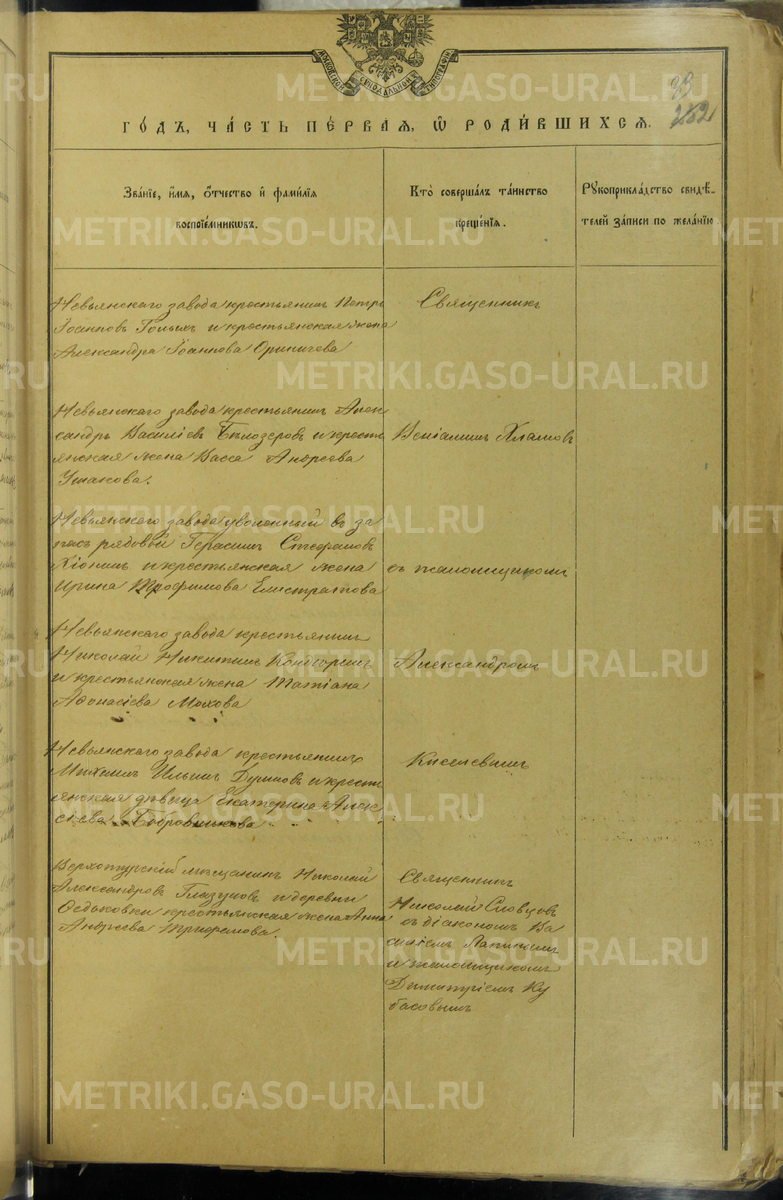 МОСКОВСКОЙ СѴНОДАЛЬНОЙ ТИПОГРАФІИ
93
262
ГО́ДЪ, ЧА́СТЬ ПЕ́РВАЯ, Ѽ РОДИ́ВШИХСЯ.
Зва́нїе, и́мя, ѻ҆́тчество и҆ фами́лїя
воспрїе́мникѡвъ.
Кто̀ соверша́лъ та́инство
креще́нїя.
Рꙋкоприкла́дство свидѣ́-
телей за́писи по жела́нїю.
Невьянскаго завода крестьянинъ Петръ
Іоанновъ Голыхъ и крестьянская жена
Александра Іоаннова
Священникъ
Невьянскаго завода крестьянинъ Алек-
сандръ Василіевъ Бѣлозеровъ и кресть
янская жена Васса Андреева
Ушакова.
Веніаминъ Хламовъ
Невьянскаго завода уволенный въ за
пасъ рядовой Герасимъ Стефановъ
и крестьянская жена
Ирина Трофимова Елистратова
съ псаломщикомъ
Невьянскаго завода крестьянинъ
Николай Никитинъ
и крестьянская жена Татіана
Афонасіева Мохова
Александромъ
Невьянскаго завода крестьянинъ
Михаилъ Ильинъ и кресть
янская дѣвица Екатерина Алек
сіева Бобровникова
Киселевымъ
Верхотурскій мѣщанинъ Николай
Александровъ Глазуновъ и деревни
Федьковки крестьянская жена Анна
Андреева Трифонова.
Священникъ
Николай Словцовъ
съ діакономъ Ва
силіемъ Лапинымъ
и псаломщикомъ
Димитріемъ Ку
басовымъ
METRIKI.GASO-URAL.RU